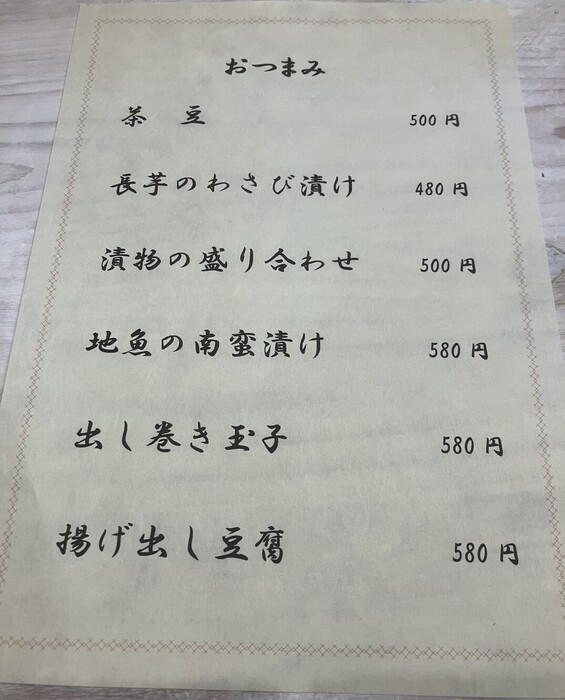 おつまみ
茶 豆 500円
長芋のわさび漬け 480円
漬物の盛り合わせ 500円
地魚の南蛮漬け 580円
出し巻き玉子 580円
揚げ出し豆腐 580円